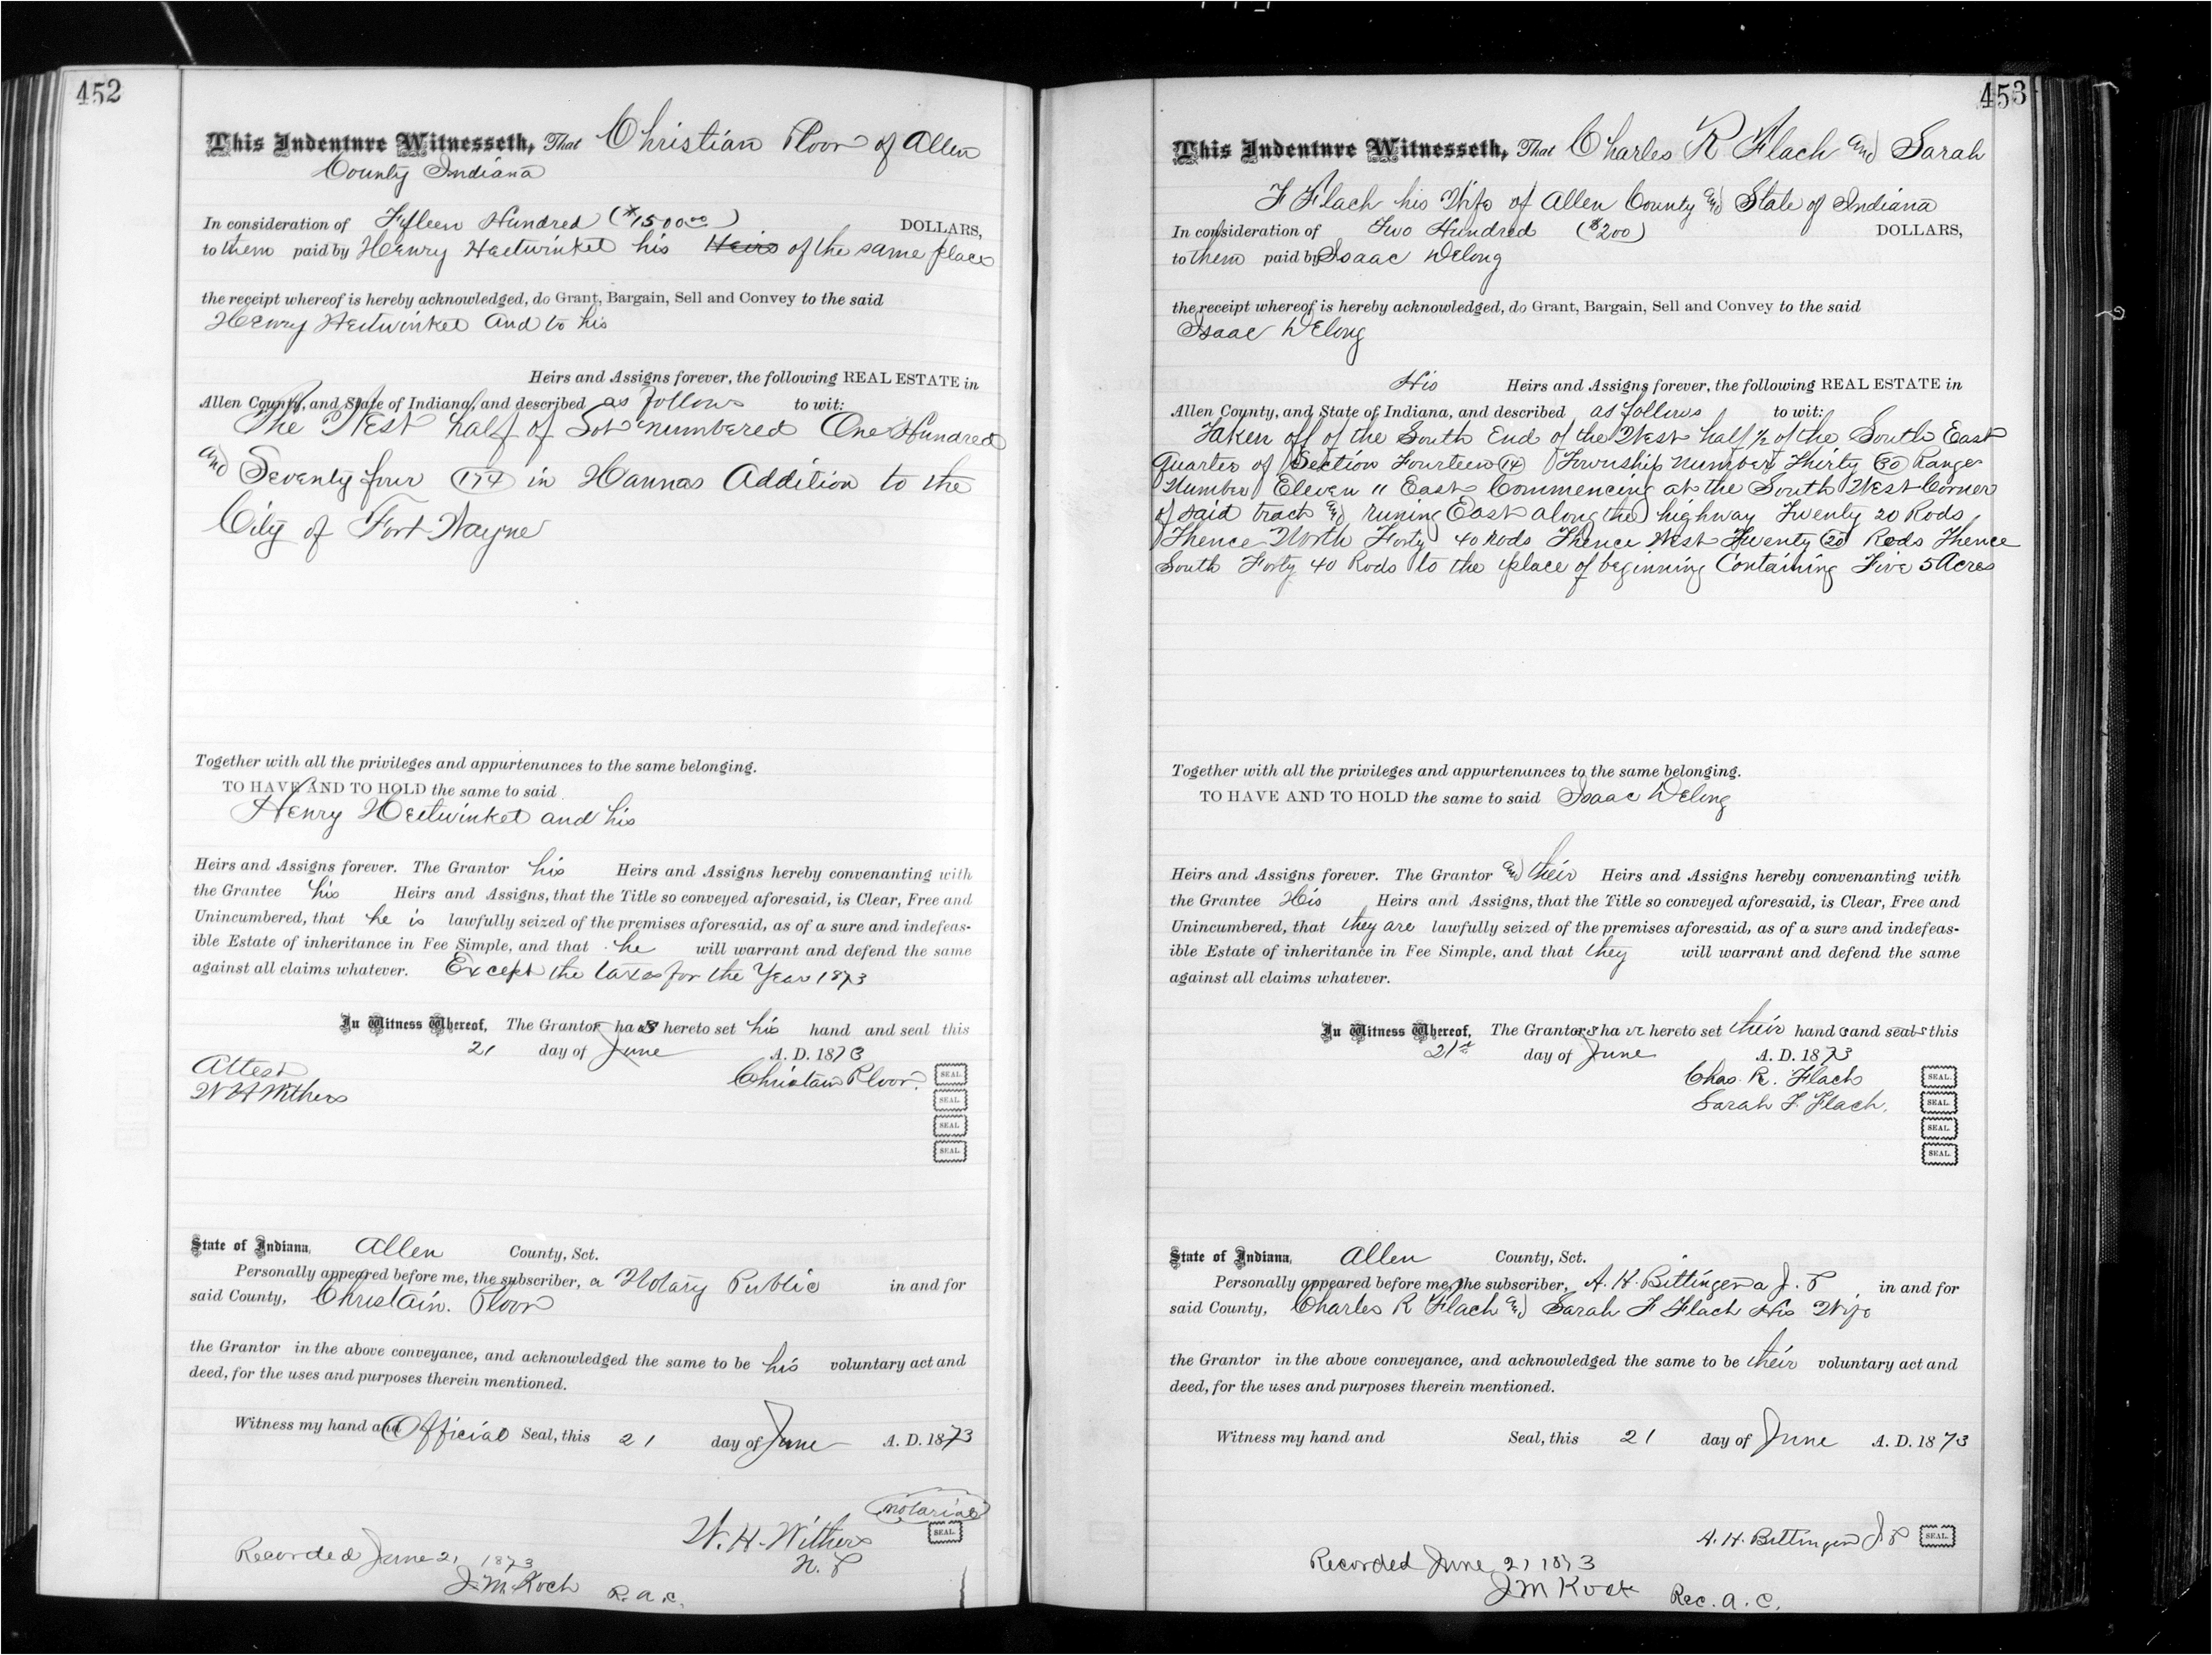 452
This Indenture Witnesseth, That Christian Ploor of Allen
County Indiana
In consideration of Fifteen Hundred ($1500 00) DOLLARS,
to them paid by Henry Heitwinkel his Heirs of the same place
the receipt whereof is hereby acknowledged, do Grant, Bargain, Sell and Convey to the said
Henry Heitwinkel and to his
Heirs and Assigns forever, the following REAL ESTATE in
Allen County, and State of Indiana, and described as follows to wit:
The West half of Lot numbered One Hundred
and Seventy four (174) in Hannas Addition to the
City of Fort Wayne
Together with all the privileges and appurtenances to the same belonging.
TO HAVE AND TO HOLD the same to said
Henry Heitwinkel and his
Heirs and Assigns forever. The Grantor his Heirs and Assigns hereby convenanting with
the Grantee his Heirs and Assigns, that the Title so conveyed aforesaid, is Clear, Free and
Unincumbered, that he is lawfully seized of the premises aforesaid, as of a sure and indefeas-
ible Estate of inheritance in Fee Simple, and that he will warrant and defend the same
against all claims whatever. Except the taxes for the Year 1873
In Witness Whereof, The Grantor has hereto set his hand and seal this
21 day of June A. D. 1873
Attest Christain Ploor. SEAL
W H Withers SEAL
SEAL
SEAL
State of Indiana, Allen County, Sct.
Personally appeared before me, the subscriber, a Notary Public in and for
said County, Christain. Ploor
the Grantor in the above conveyance, and acknowledged the same to be his voluntary act and
deed, for the uses and purposes therein mentioned.
Witness my hand and Official Seal, this 21 day of June A. D. 1873
notarial
W. H. Withers SEAL
N. P
Recorded June 21 1873
J. M. Koch R. a. c.
453
This Indenture Witnesseth, That Charles R Flach and Sarah
F Flach his Wife of Allen County and State of Indiana
In consideration of Two Hundred ($200) DOLLARS,
to them paid by Isaac Delong
the receipt whereof is hereby acknowledged, do Grant, Bargain, Sell and Convey to the said
Isaac Delong
His Heirs and Assigns forever, the following REAL ESTATE in
Allen County, and State of Indiana, and described as follows to wit:
Taken off of the South End of the West half ½ of the South East
Quarter of Section Fourteen (14) Township Number Thirty (30) Range
Number Eleven 11 East Commencing at the South West Corner
of said tract and runing East along the highway Twenty 20 Rods
Thence North Forty 40 Rods Thence West Twenty (20) Rods Thence
South Forty 40 Rods to the place of beginning Containing Five 5 Acres
Together with all the privileges and appurtenances to the same belonging.
TO HAVE AND TO HOLD the same to said Isaac Delong
Heirs and Assigns forever. The Grantor and their Heirs and Assigns hereby convenanting with
the Grantee His Heirs and Assigns, that the Title so conveyed aforesaid, is Clear, Free and
Unincumbered, that they are lawfully seized of the premises aforesaid, as of a sure and indefeas-
ible Estate of inheritance in Fee Simple, and that they will warrant and defend the same
against all claims whatever.
In Witness Whereof, The Grantors have hereto set their hands and seals this
21st day of June A. D. 1873
Chas. R. Flach SEAL
Sarah F. Flach. SEAL
SEAL
SEAL
State of Indiana, Allen County, Sct.
Personally appeared before me, the subscriber, A. H. Bittinger a J. P in and for
said County, Charles R Flach and Sarah F Flach His Wife
the Grantor in the above conveyance, and acknowledged the same to be their voluntary act and
deed, for the uses and purposes therein mentioned.
Witness my hand and Seal, this 21 day of June A. D. 1873
A. H. Bittinger J P SEAL
Recorded June 21 1873
J M Koch Rec. a. c.